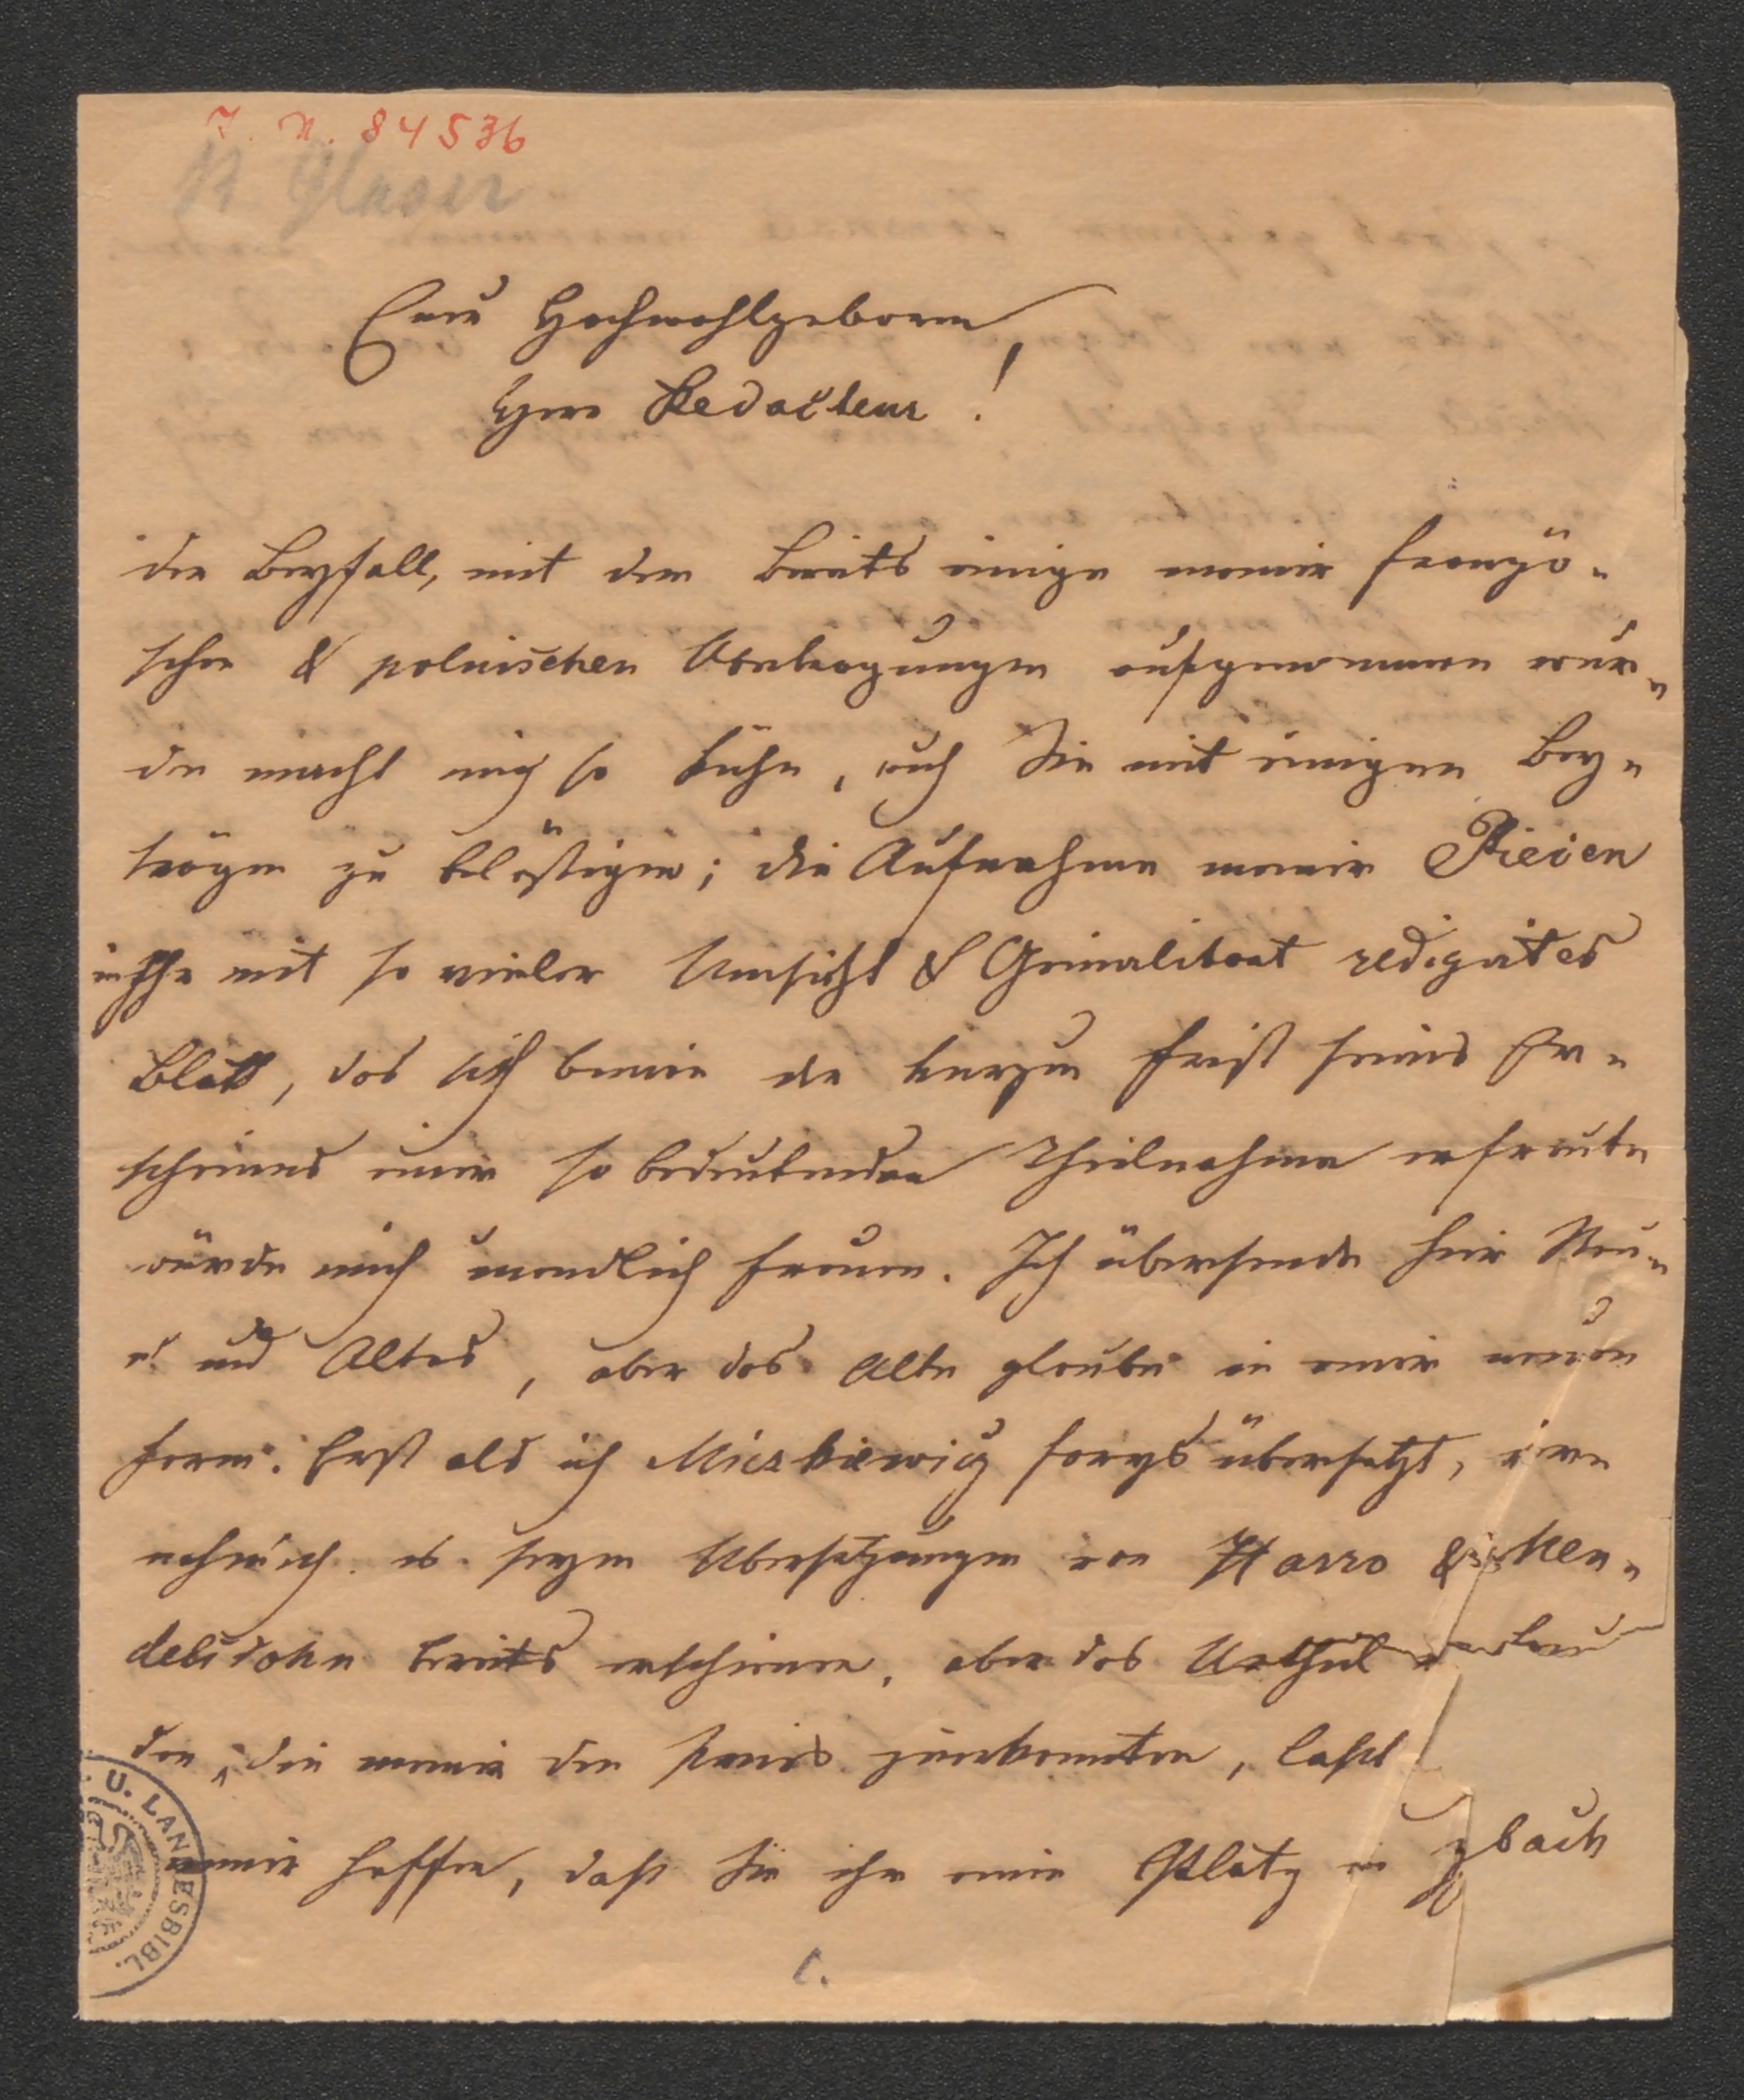 I. N. 84536
R Glaser
Euer Hochwohlgeboren
Herr Redacteur !
der Beyfall, mit dem bereits einige meiner franzö-
schen & polnischen Übertragungen aufgenommen wur-
de macht mich so kühn, auch Sie mit einigen Bey-
trägen zu belästigen; die Aufnahme meiner Piecen
in Ihr mit so vieler Umsicht & Genialitaet redigirtes
Blatt, das sich binnen der kurzen Frist seines Er-
scheinens einer so bedeutenden Theilnahme erfreute
würde mich unendlich freuen. Ich übersende hier Neu-
es und Altes, aber das Alte glaube in einer neuen
Form. Erst als ich Mickiewicz Farys übersetzt,
es seyen Übersetzungen von Harro & Men-
delssohn bereits erschienen, aber das Urtheil
den, die meiner den Preis zuerkannten, lässt
hoffen, daß Sie ihr einen Platz in
U. LANDESBIBL.